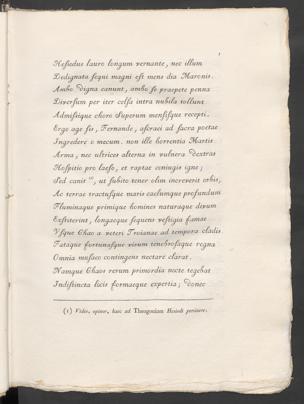 Hesiodus lauro longum vernante, nec illum
Dedignata sequi magni est mens dia Maronis.
Ambo digna canunt, ambo se praepete penna
Diversum per iter celsa intra nubila tollunt
Admissique choro Superum mensisque recepti.
Ergo age sis, Fernande, ascraei ad sacra poetae
Ingredere o mecum. non ille horrentia Martis
Arma, nec ultrices alterna in vulnera dextras
Hospitio pro laeso, et raptae coniugis igne;
Sed canit ⁽¹⁾, ut subito tener olim increverit orbis,
Ac terrae tractusque maris caelumque profundum
Fluminaque primique homines naturaque divum
Exstiterint, longaeque sequens vestigia famae
Usque Chao a veteri Troianae ad tempora cladis
Fataque fortunasque virum tenebrosaque regna
Omnia musaeo contingens nectare clarat.
Namque Chaos rerum primordia nocte tegebat
Indistincta locis formaeque expertia; donec
(1) Vides, opinor, haec ad Theogoniam Hesiodi pertinere.